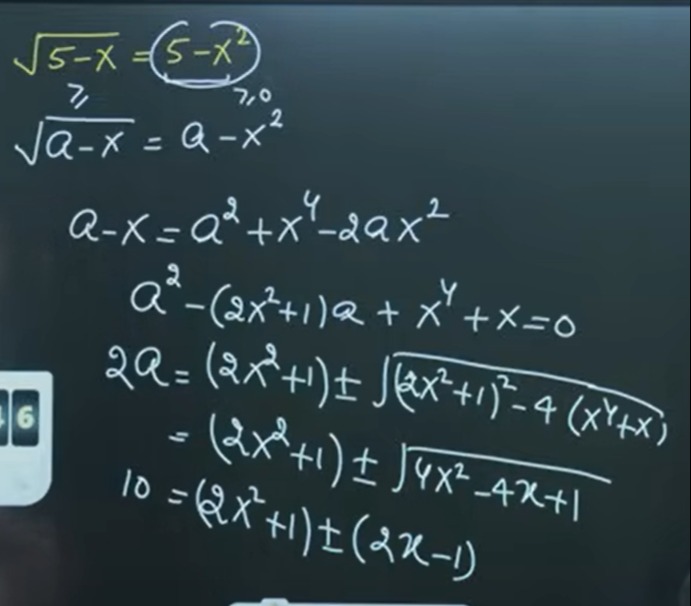 √5-x = 5-x²
⩾ ⩾0
√a-x = a-x²
a-x = a²+x⁴-2ax²
a²-(2x²+1)a + x⁴+x=0
2a = (2x²+1) ± √(2x²+1)²-4(x⁴+x)
= (2x²+1) ± √4x²-4x+1
10 = (2x²+1) ± (2x-1)
6